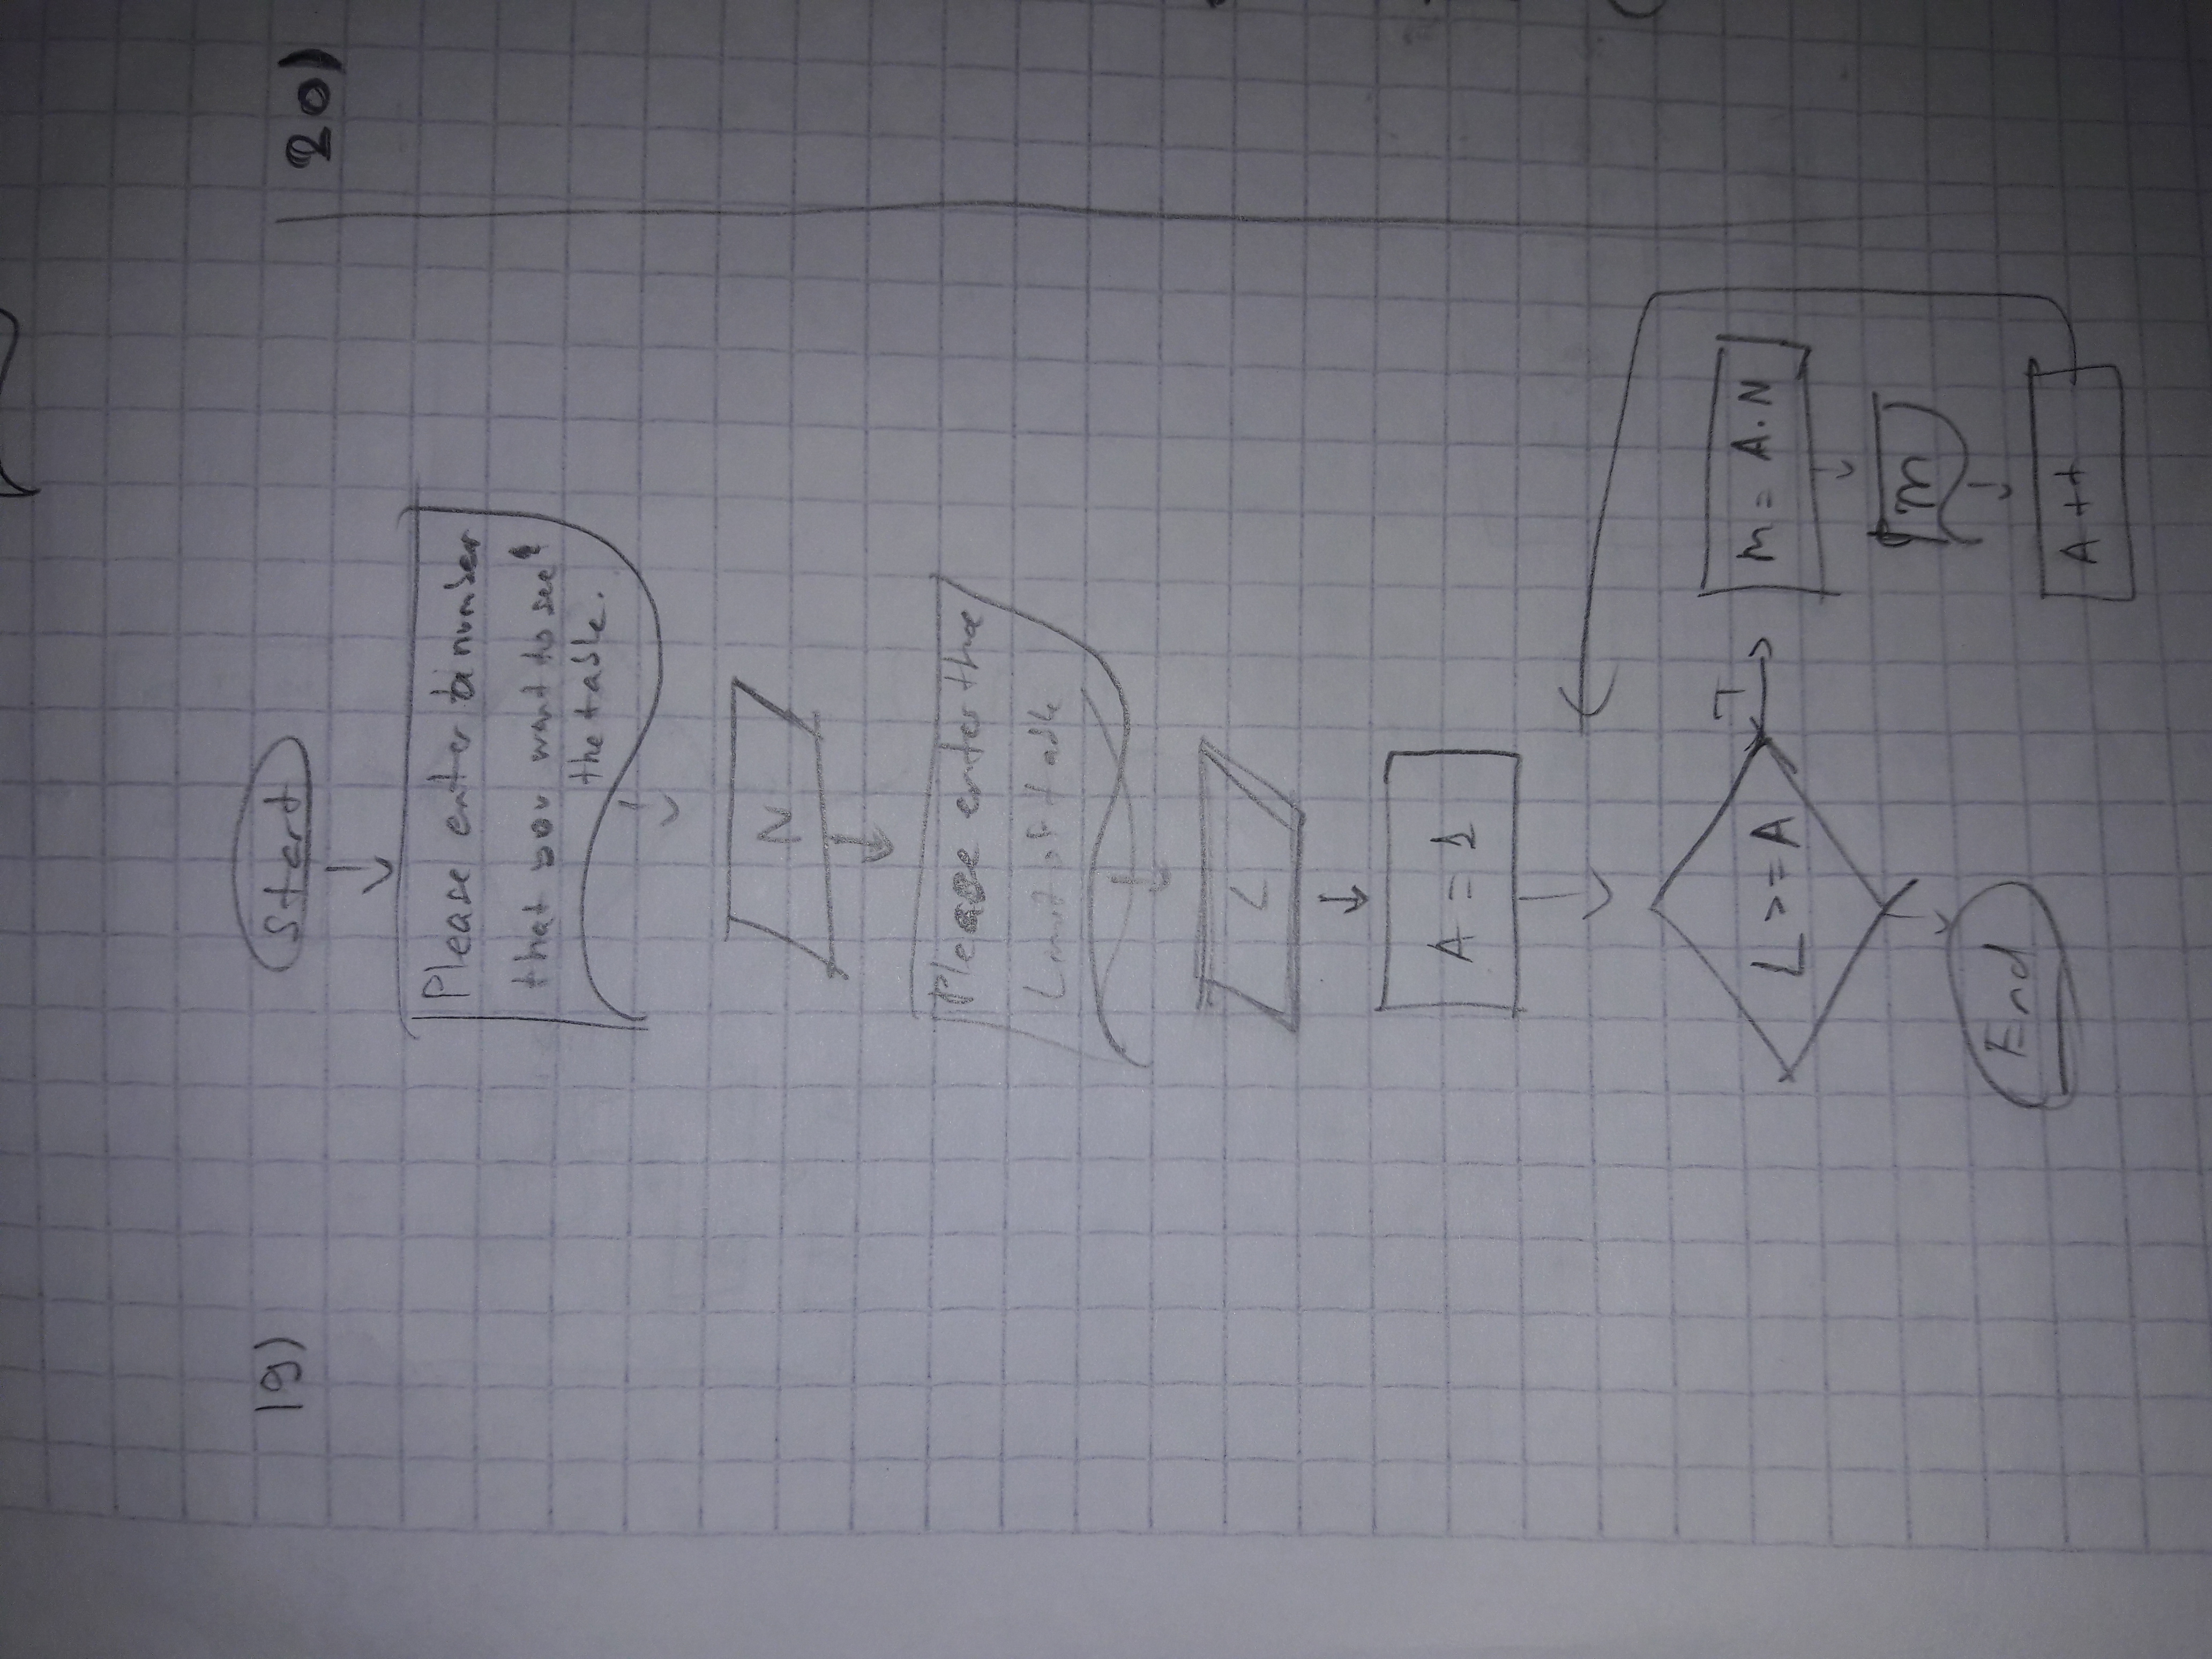 19)
20)
Start
Please enter a number
that you want to see
the table.
N
Please enter the
Limit of table
L
A = 1
L >= A
T
m = A.N
m
A ++
End